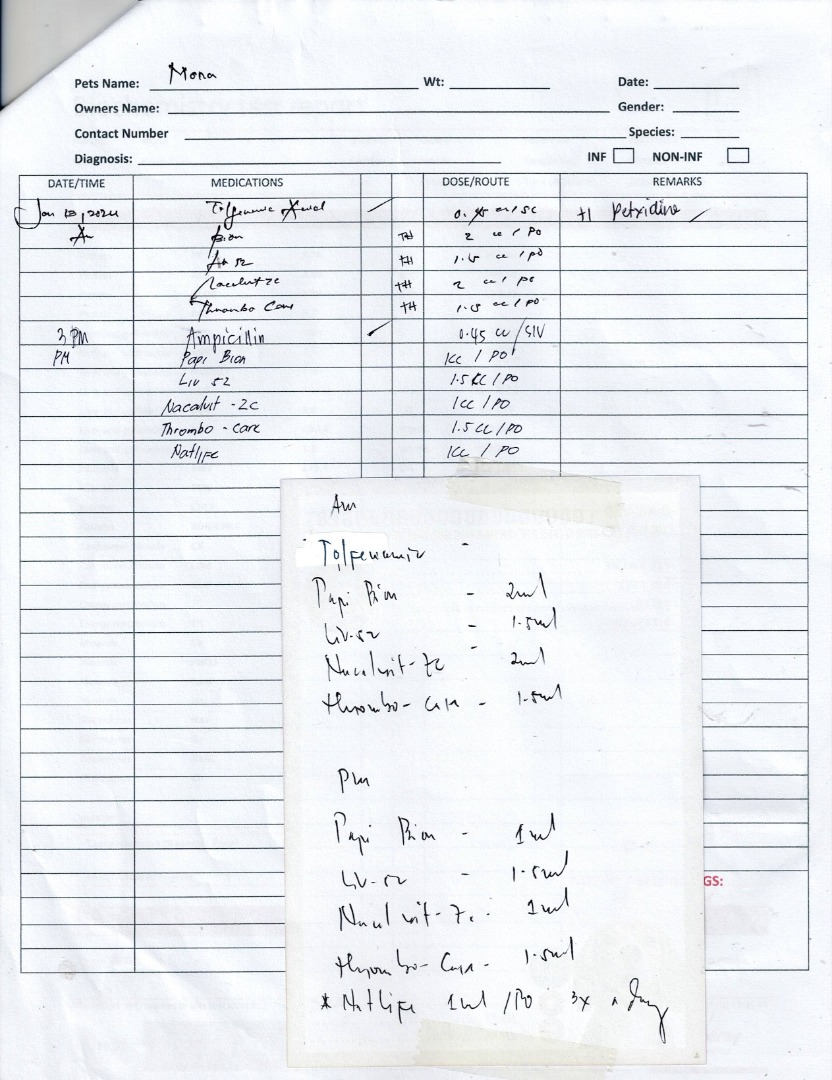 Pets Name: Mona Wt: Date:
Owners Name: Gender:
Contact Number Species:
Diagnosis: INF NON-INF
DATE/TIME MEDICATIONS DOSE/ROUTE REMARKS
Jan 2024 0.45 cc / SC +1
Am Bion 2 cc / PO
52 1.5 cc / PO
2 cc / PO
Thrombo Care 1.5 cc / PO
3 PM Ampicillin 0.45 cc / SIV
PM Papi Bion 1cc / PO
Liv 52 1.5 cc / PO
Nacalvit - 2c 1cc / PO
Thrombo - care 1.5 cc / PO
Natlife 1cc / PO
Am
Tolfenamic -
Papi Bion - 2ml
Liv-52 - 1.5ml
Nacalvit-Zc - 2ml
thrombo- care - 1.5ml
Pm
Papi Bion - 1ml
Liv-52 - 1.5ml
Nacalvit-Zc - 1ml
thrombo- Care - 1.5ml
* Natlife 1ml / PO 3x a day
GS: